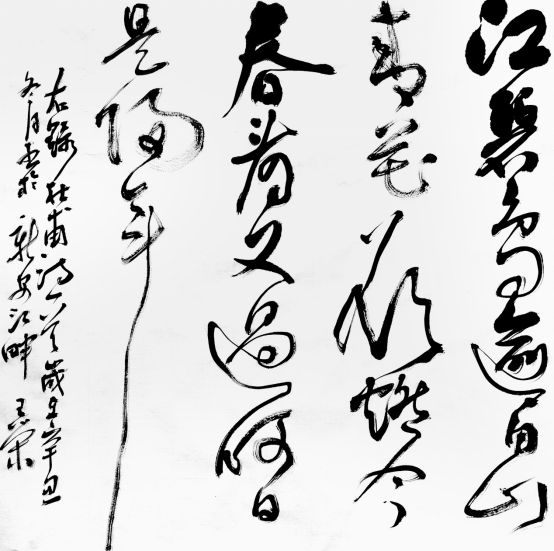 江碧鳥逾白山
青花欲燃今
春看又過何日
是歸年
右録杜甫詩一首歲在辛丑
冬月書於新安江畔